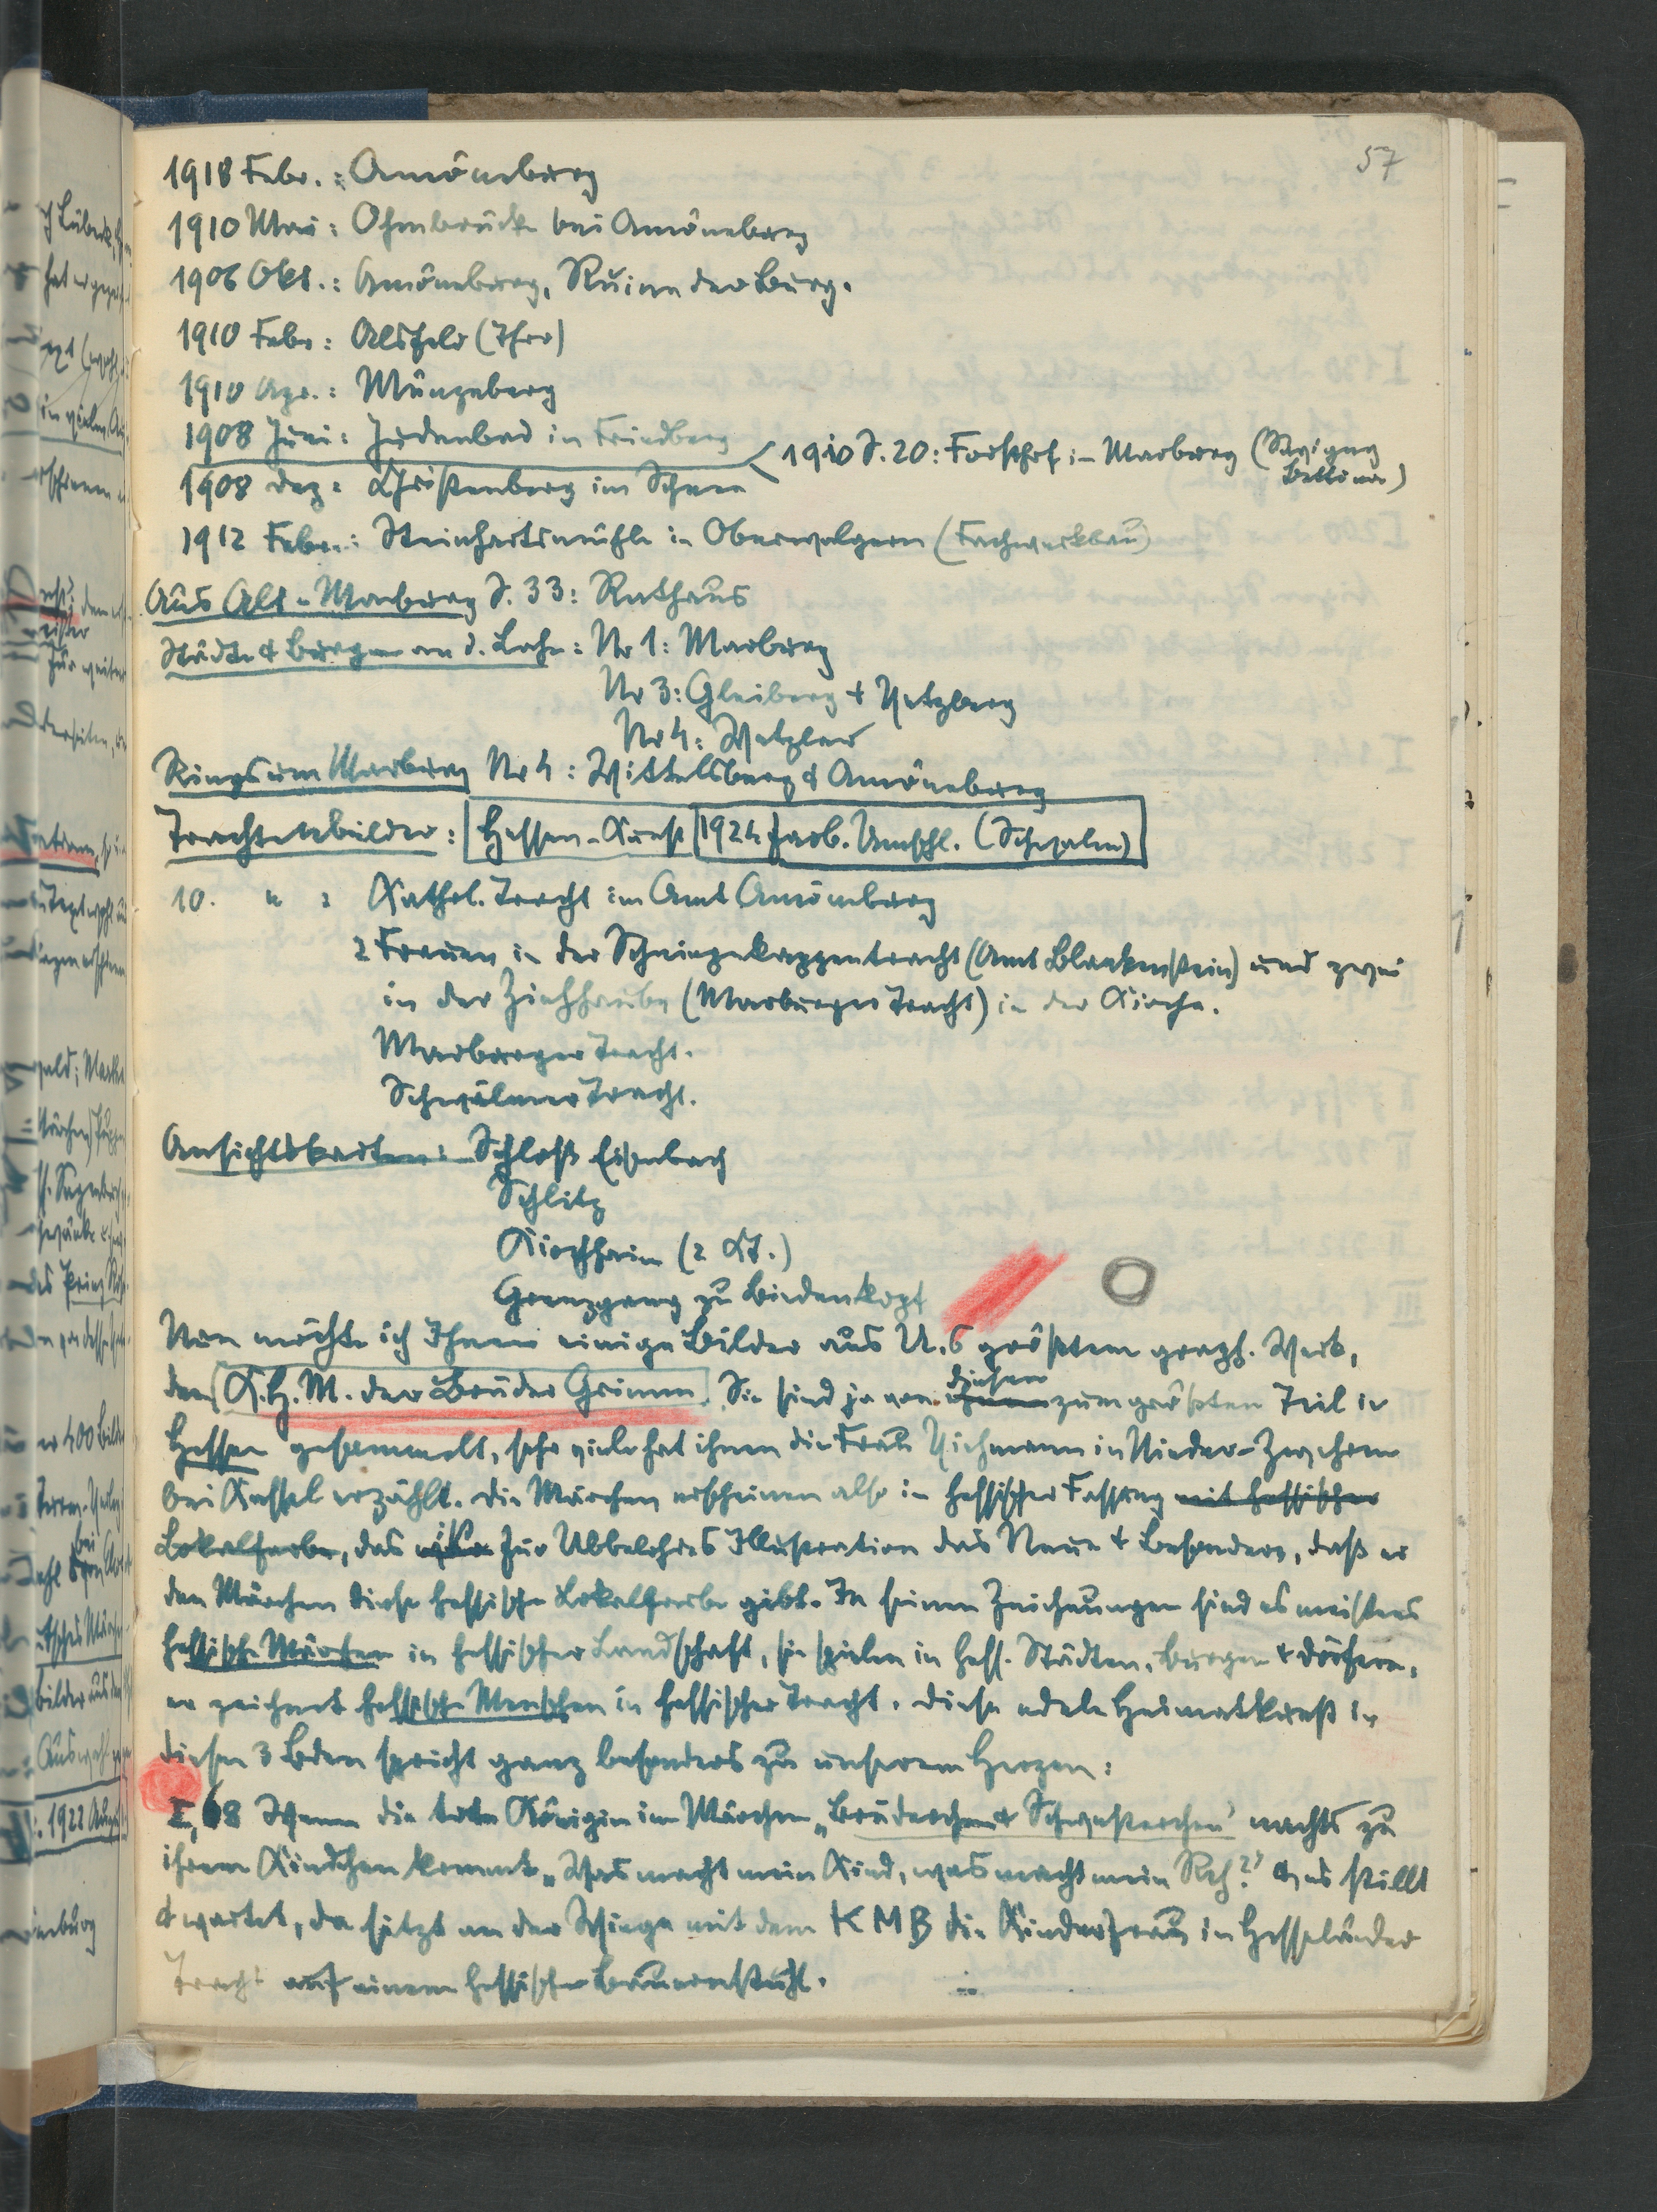 57
1918 Febr.: Amöneburg
1910 Mai: Ohmbrücke bei Amöneburg
1906 Okt.: Amöneburg, Ruine der Burg.
1910 Febr: Alsfeld (Thor)
1910 Apr.: Münzenberg
1908 Juni: Judenbad in Friedberg
1910 S. 20: Forsthof in Marburg (Savigny Bettina)
1908 Dez: Christenberg im Schnee
1912 Febr.: Steinhartsmühle in Oberwalgern (Fachwerkbau)
Aus Alt-Marburg S. 33: Rathaus
Städte & Burgen an d. Lahn: Nr 1: Marburg
Nr 3: Gleiberg & Vetzberg
Nr 4: Wetzlar
Rings um Marburg Nr 4: Wittelsberg & Amöneburg
Trachtenbilder: Hessen-Kunst 1924 farb. Umschl. (Schwalm)
10. " : Kathol. Tracht im Amt Amöneburg
2 Frauen in der Schneppekappentracht (Amt Blankenstein) und zwei
in der Ziehhaube (Marburger Tracht) in der Kirche.
Marburger Tracht.
Schwälmer Tracht.
Ansichtskarten: Schloß Eisenbach
Schlitz
Kirchhain (2 K.)
Grenzgang zu Biedenkopf
Nun möchte ich Ihnen einige Bilder aus U.s größtem graph. Werk,
den K.H.M. der Brüder Grimm. Sie sind ja von diesen zum größten Teil in
Hessen gesammelt, sehr viele hat ihnen die Frau Viehmann in Nieder-Zwehren
bei Kassel erzählt. Die Märchen erscheinen also in hessischer Fassung mit hessischer
Lokalfarbe, das ist für Ubbelohdes Illustration das Neue & Besondere, daß er
den Märchen diese hessische Lokalfarbe gibt. In seinen Zeichnungen sind es meistens
hessische Märchen in hessischer Landschaft, sie spielen in hess. Städten, Burgen & Dörfern,
er zeichnet hessische Menschen in hessischer Tracht. Diese edele Heimatkunst in
diesen 3 Bden spricht ganz besonders zu unserem Herzen:
I, 68 Wenn die tote Königin im Märchen „Brüderchen & Schwesterchen" nachts zu
ihrem Kindchen kommt „Was macht mein Kind, was macht mein Reh?" & es stillt
& wartet, da sitzt an der Wiege mit dem K M B die Kinderfrau in Hessländer
Tracht auf einem hessischen Bauernstuhl.